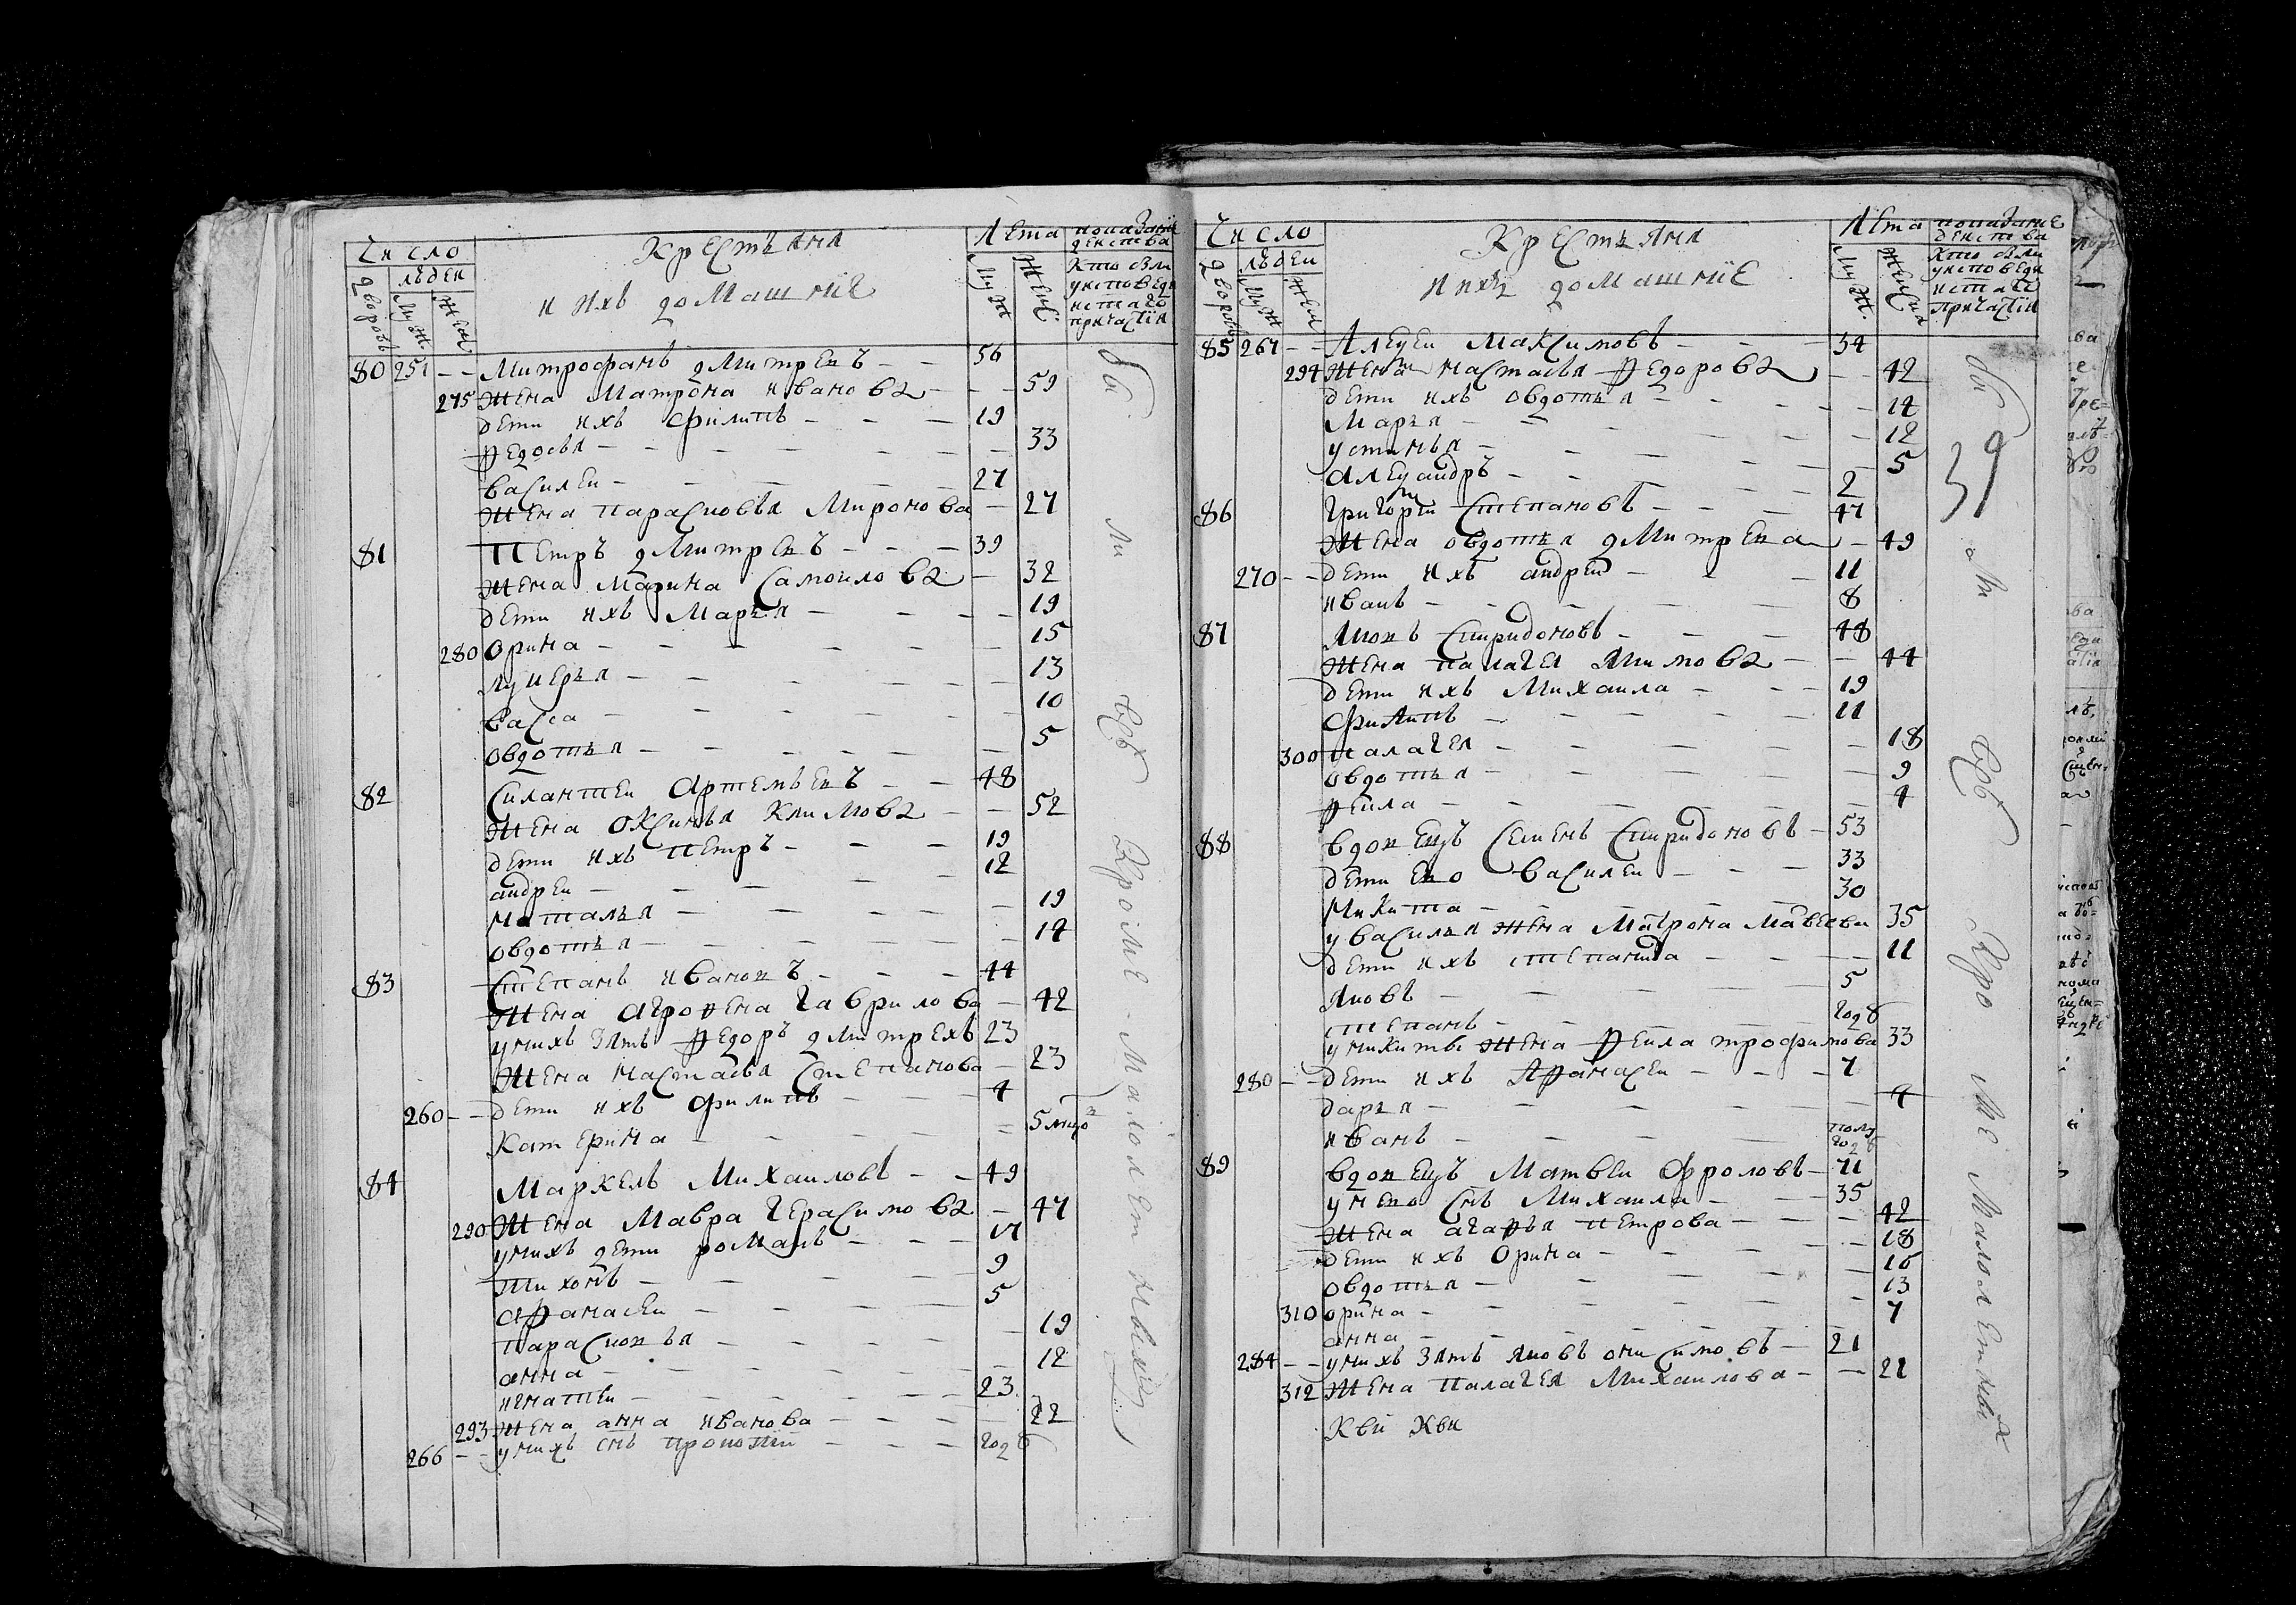 Число
Крестьяня
Лета
показание
действа
дворовъ
людей
муж
жен
и ихъ домашние
муж
женс
Кто были
у исповеди
и с таго
причастія
80 251 Митрофанъ дмитреевъ 56
275 Жена Матрона иванова 59
дети ихъ филипъ 19
Ѳедосья 33
василеи 27
Жена парасковья Миронова 27
81 Петръ дмитревъ 39
Жена Марина Самоилова 32
дети ихъ Марья 19
280 Орина 15
лукерья 13
васса 10
овдотья 5
82 Силантеи артемьевъ 48
Жена оксинья климова 52
дети ихъ петръ 19
андреи 12
Наталья 19
овдотья 12
83 Степанъ ивановъ 44
Жена агроѳена гаврилова 42
у нихъ зять Ѳедоръ дмитревъ 23
Жена настасья степанова 23
260 дети ихъ филипъ 4
Катерина 5 мцо
84 Маркелъ Михаиловъ 49
290 Жена Мавра герасимова 47
у нихъ дети романъ 17
тихонъ 9
аѳанасеи 5
парасковья 19
анна 12
игнатеи 23
293 Жена анна иванова 22
266 у нихъ снъ прокопеи годъ
были вси кроме малолетныхъ
Число
Крестьяня
Лета
показание
действа
дворовъ
людей
муж
жен
и ихъ домашние
муж
женска
Кто были
у исповеди
и с таго
причастія
85 267 Алеѯеи Максимовъ 34
294 Жена настасья Ѳедорова 42
дети ихъ овдотья 12
Марья 12
устинья 5
алеѯандръ 2
86 григореи степановъ 47
Жена овдотья дмитрева 49
270 дети ихъ андреи 11
иванъ 8
87 яковъ спиридоновъ 48
Жена палагея якимова 44
дети ихъ Михаила 19
филипъ 11
300 палагея 18
овдотья 9
Ѳекла 4
88 вдовецъ семенъ спиридоновъ 53
дети ево василеи 33
Никита 30
у василья жена Матрона Мавеева 35
дети ихъ степанида 11
яковъ 5
степанъ годъ
у никиты жена Ѳекла трофимова 33
280 дети ихъ Аѳанасеи 7
дарья 4
иванъ полу годъ
89 вдовецъ Матвеи фроловъ 71
у нево снъ Михаила 35
Жена агаѳья петрова 42
дети ихъ Орина 18
овдотья 16
310 орина 13
анна 7
284 у нихъ зять яковъ онисимовъ 21
312 Жена палагея Михаилова 21
39
были вси кроме малолетныхъ